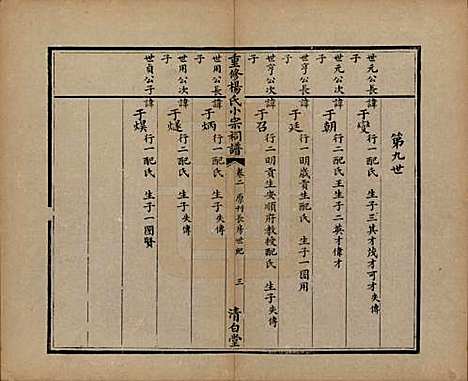 第九世
世元公長諱于變行一配氏 生子三其才茂才可才失傳
子
世元公次諱于朝行二配氏王生子二英才偉才
子
世亨公長諱于廷行一明歲貢生配氏 生子一圖用
子
世亨公次諱于召行二明貢生安順府教授配氏 生子失傳
子
重修楊氏小宗祠譜 卷二 原刊長房世紀 三 清白堂
世用公長諱于炳行一配氏 生子失傳
子
世用公次諱于 行二配氏 生子失傳
子
世貞公子諱于 行一配氏 生子一圖賢